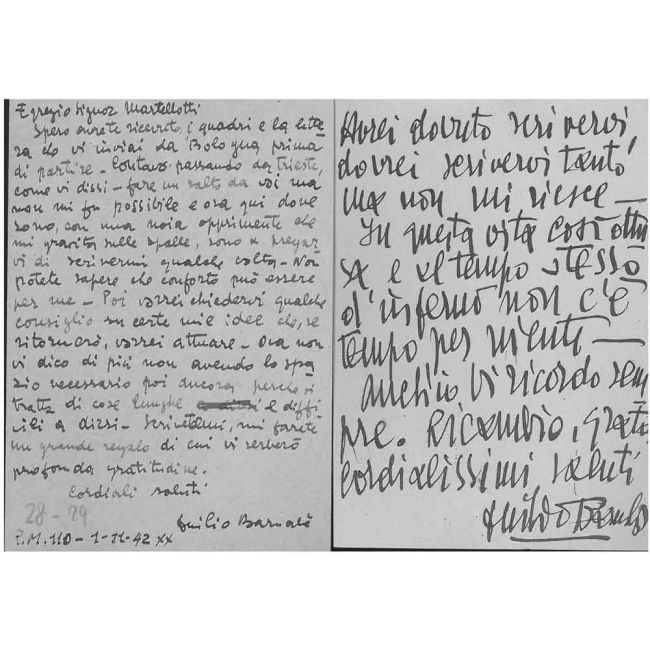 Egregio Signor Martellotti
Spero avrete ricevuto i quadri e la lette
ra che vi inviai da Bologna prima
di partire - Contavo passando da Trieste,
come vi dissi - fare un salto da voi ma
non mi fu possibile e ora qui dove
sono, con una noia opprimente che
mi gravita sulle spalle, sono a pregar
vi di scrivermi qualche volta - Non
potete sapere che conforto può essere
per me - Poi vorrei chiedervi qualche
consiglio su certe mie idee che, se
ritornerò, vorrei attuare - Ora non
vi dico di più non avendo lo spa
zio necessario poi ancora perchè si
tratta di cose lunghe e diffi
cili a dirsi - Scrivetemi, mi farete
un grande regalo di cui vi serberò
profonda gratitudine.
Cordiali saluti
28 - 29
P.M. 110 - 1-11-42 XX
Avrei dovuto scrivervi,
dovrei scrivervi tanto
ma non mi riesce -
In questa vita così ottu
sa e al tempo stesso
d'inferno non c'è
tempo per niente -
Anch'io vi ricordo sem
pre. Ricambio, grato
cordialissimi saluti